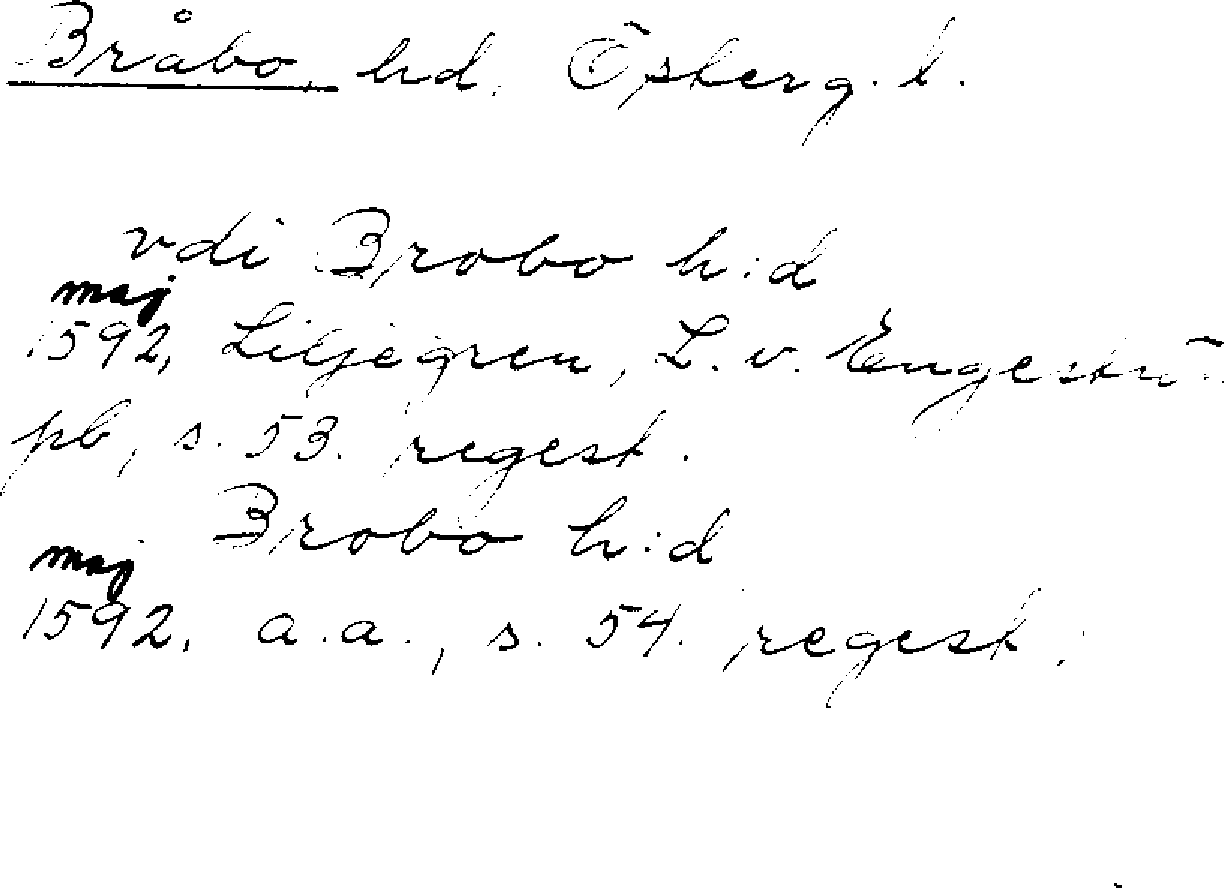 Bråbo, hd. Österg. l.
vdi Brobo h:d
maj
1592, Liljegren, L. v. Engeström
pb, s. 53. regest.
Brobo h:d
maj
1592. a.a., s. 54. regest.